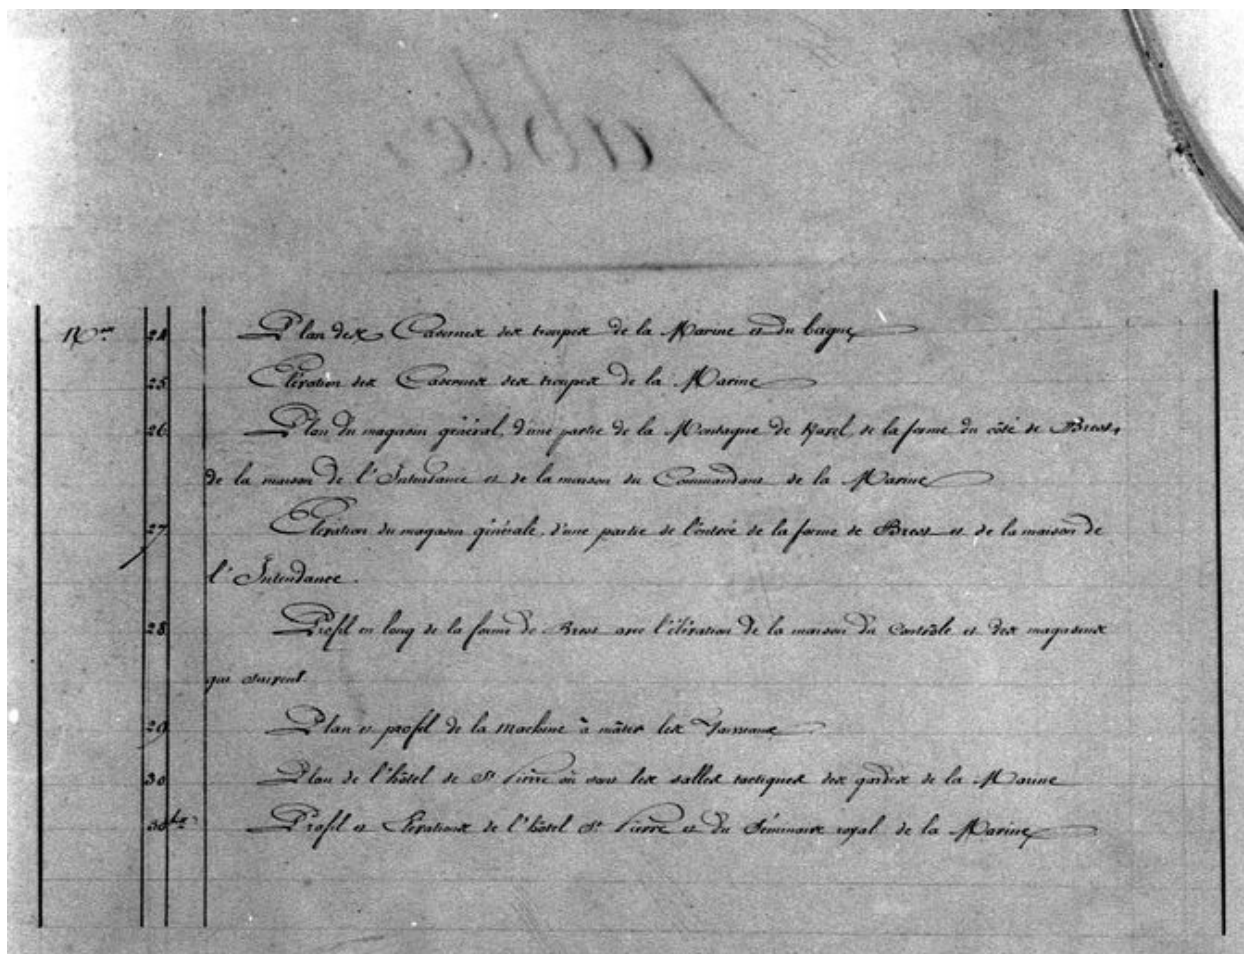 Table
Nos 24 Plan des Casernes des troupes de la Marine et du bagne
25 Elévation des Casernes des troupes de la Marine
26 Plan du magasin général, d'une partie de la Montagne de Kavel, de la forme du côté de Brest,
de la maison de l'Intendance et de la maison du Commandant de la Marine
27 Elévation du magasin générale, d'une partie de l'entrée de la forme de Brest et de la maison de
l'Intendance.
28 Profil en long de la forme de Brest avec l'élévation de la maison du Contrôle et des magasins
qui suivent.
29 Plan et profil de la machine à mâter les Vaisseaux
30 Plan de l'hôtel de St Pierre où sont les salles tactiques des gardes de la Marine
30 bis Profil et Elévations de l'hôtel St Pierre et du Séminaire royal de la Marine